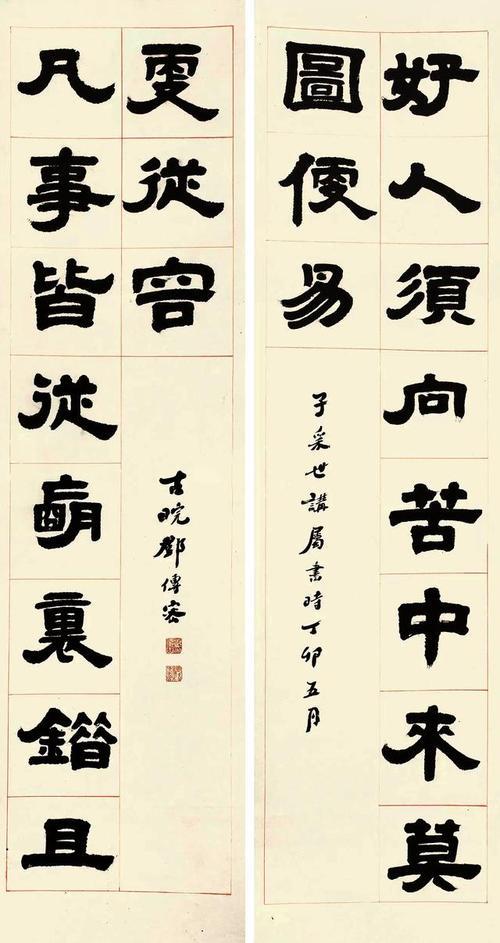 好人須向苦中來莫
圖便易
子采世講屬書時丁卯五月
凡事皆從朚裏錯且
更從容
古皖鄧傳密